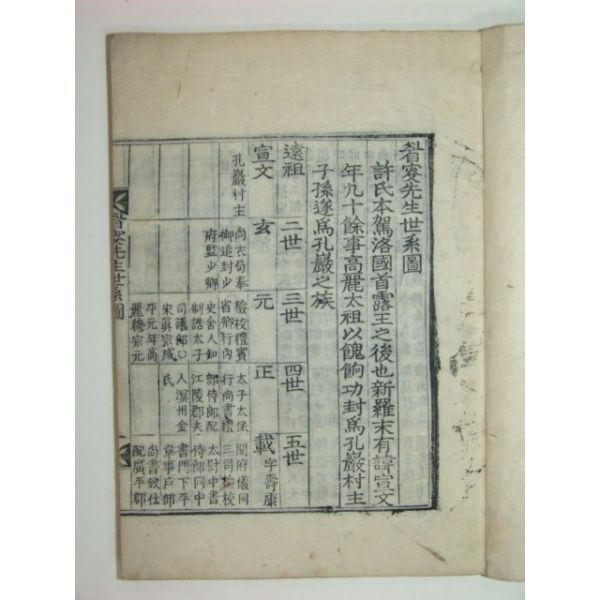 先生世系圖
許氏本駕洛國首露王之後也新羅末有諱宣文
年九十餘事高麗太祖以餽餉功封爲孔巖村主
子孫遂爲孔巖之族
遠祖 二世 三世 四世 五世
宣文 玄 元 正 載 字壽康
孔巖村主
尙衣局奉
御追封少
府監少卿
檢校禮賓
省卿行內
史舍人知
制誥太子
司議郞○
宋眞宗咸
平元年高
麗穆宗元
太子太保
行尙書禮
部侍郞配
江陵郡夫
人溟州金
氏
開府儀同
三司檢校
太尉中書
侍郞同中
書門下平
章事戶部
尙書致仕
配廣平郡
先生世系圖